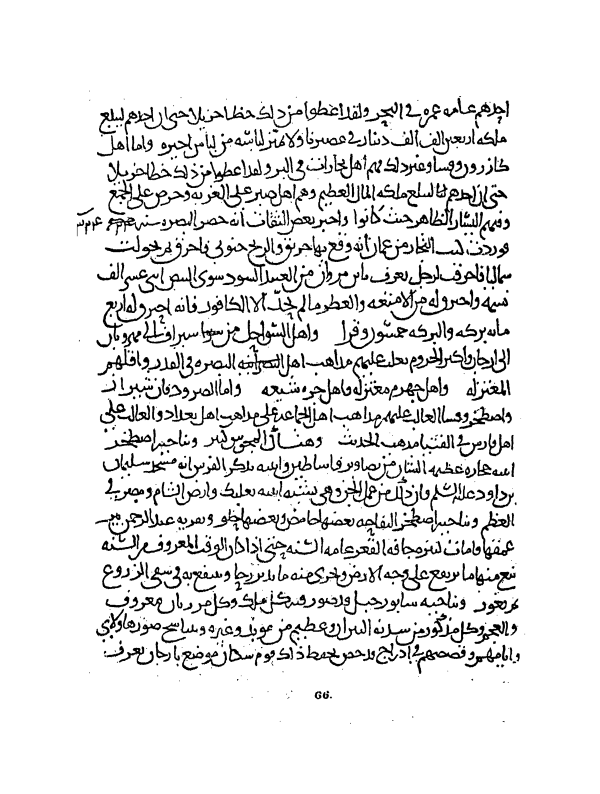 احدهم عامه عمره في البحر ولقد اعطوا من ذلك حظا جزيلا حتى ان احدهم ليبلغ
ملكه اربعين الف الف دينار في عصرنا ولا تميز لباسه من لباس اجيره واما اهل
كازرون وفسا وغير ذلك فهم اهل تجارات في البر ولقد اعطوا من ذلك حظا جزيلا
حتى ان احدهم ليبلغ ملكه المال العظيم وهم اهل صبر على الغربه وحرص على الجمع
وفيهم اليسار الظاهر حيث كانوا واخبر بعض الثقات انه حضر البصره سنه
فوردت كتب التجار من عمان انه وقع بها حريق والريح جنوبي فاحترق ثم تحولت
شمالا فاحرقت لرجل يعرف بابن مروان من العبيد السود سوى البيض اثني عشر الف
نسمه واحترق له من الامتعه والعطر ما لم يحد الا الكافور فانه احترق له اربع
مائه بركه والبركه خمسون وقرا واهل السواحل من سيراف الى مهروبان
الى ارجان واكثر الجروم يغلب عليهم مذاهب اهل البصره في القدر واقلهم
المعتزله واهل جهرم معتزله واهل خره شيعه واما الصرود فان شيراز
واصطخر وفسا الغالب عليهم مذاهب اهل الجماعه على مذاهب اهل بغداد والغالب على
اهل فارس في الفتيا مذهب الحديث وهناك المجوس كثير وبناحيه اصطخر
ابنيه حجاره عظيمه البنيان من تصاوير واساطين وابنيه يذكر الفرس انه مسجد سليمان
بن داود عليه السلم وان ذلك من عمل الجن وهي تشبه ابنيه بعلبك وارض الشام ومصر في
العظم وبناحيه اصطخر التفاحه بعضها حامض وبعضها حلو وبقريه عبد الرحمن بير
عمقها قامات كثيره جافه القعر عامه السنه حتى اذا كان الوقت المعروف من السنه
نبع منها ما يرتفع على وجه الارض ويجري منه ما يدير رحا وينتفع به في سقي الزروع
ثم يغور وبناحيه سابور جبل قد صور فيه كل ملك وكل مرزبان معروف
والعجم وكل مذكور من سدنه النيران وعظيم من موبذ وغيره وينتاسخ صورها ولاء
وايامهم وقصصهم في ادراج وقد خص بحفظ ذلك قوم سكان موضع بارجان يعرف
66.